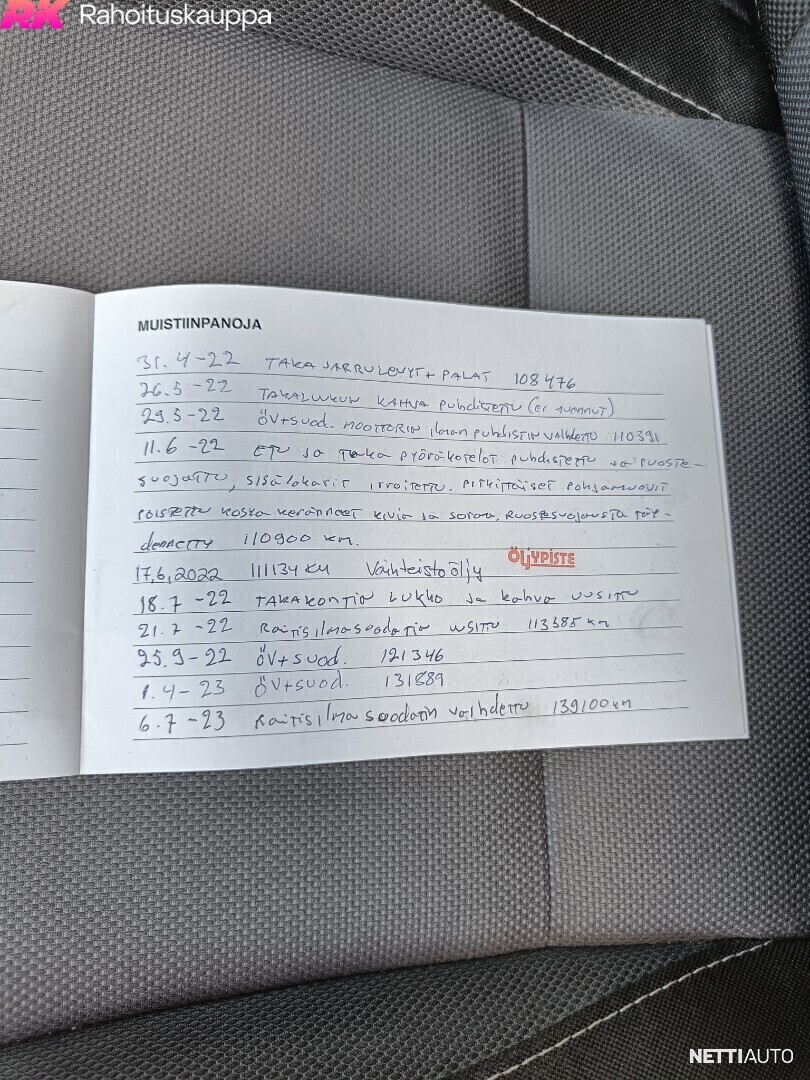 RK Rahoituskauppa
MUISTIINPANOJA
31.4-22 TAKAJARRULEVYT + PALAT 108476
26.5-22 TAKALUKUN KAHVA puhdistettu (ei auennut)
29.5-22 ÖV+SUOD. MOOTTORIN ilman puhdistin vaihdettu 110391
11.6-22 ETU ja Taka pyöräkotelot puhdistettu ja ruoste-
suojattu, sisälokarit irroitettu. pitkittäiset pohjamuovit
poistettu koska keränneet kiviä ja soraa, Ruostesuojausta täy-
dennetty 110900 km.
17.6.2022 111134 KM Vaihteistoöljy ÖLJYPISTE
18.7-22 TAKAKONTIN LUKKO ja kahva uusittu
21.7-22 Raitisilmasuodatin uusittu 113585 km
25.9-22 ÖV+suod. 121346
1.4-23 ÖV+suod. 131889
6.7-23 Raitisilma suodatin vaihdettu 139100 km
NETTIAUTO